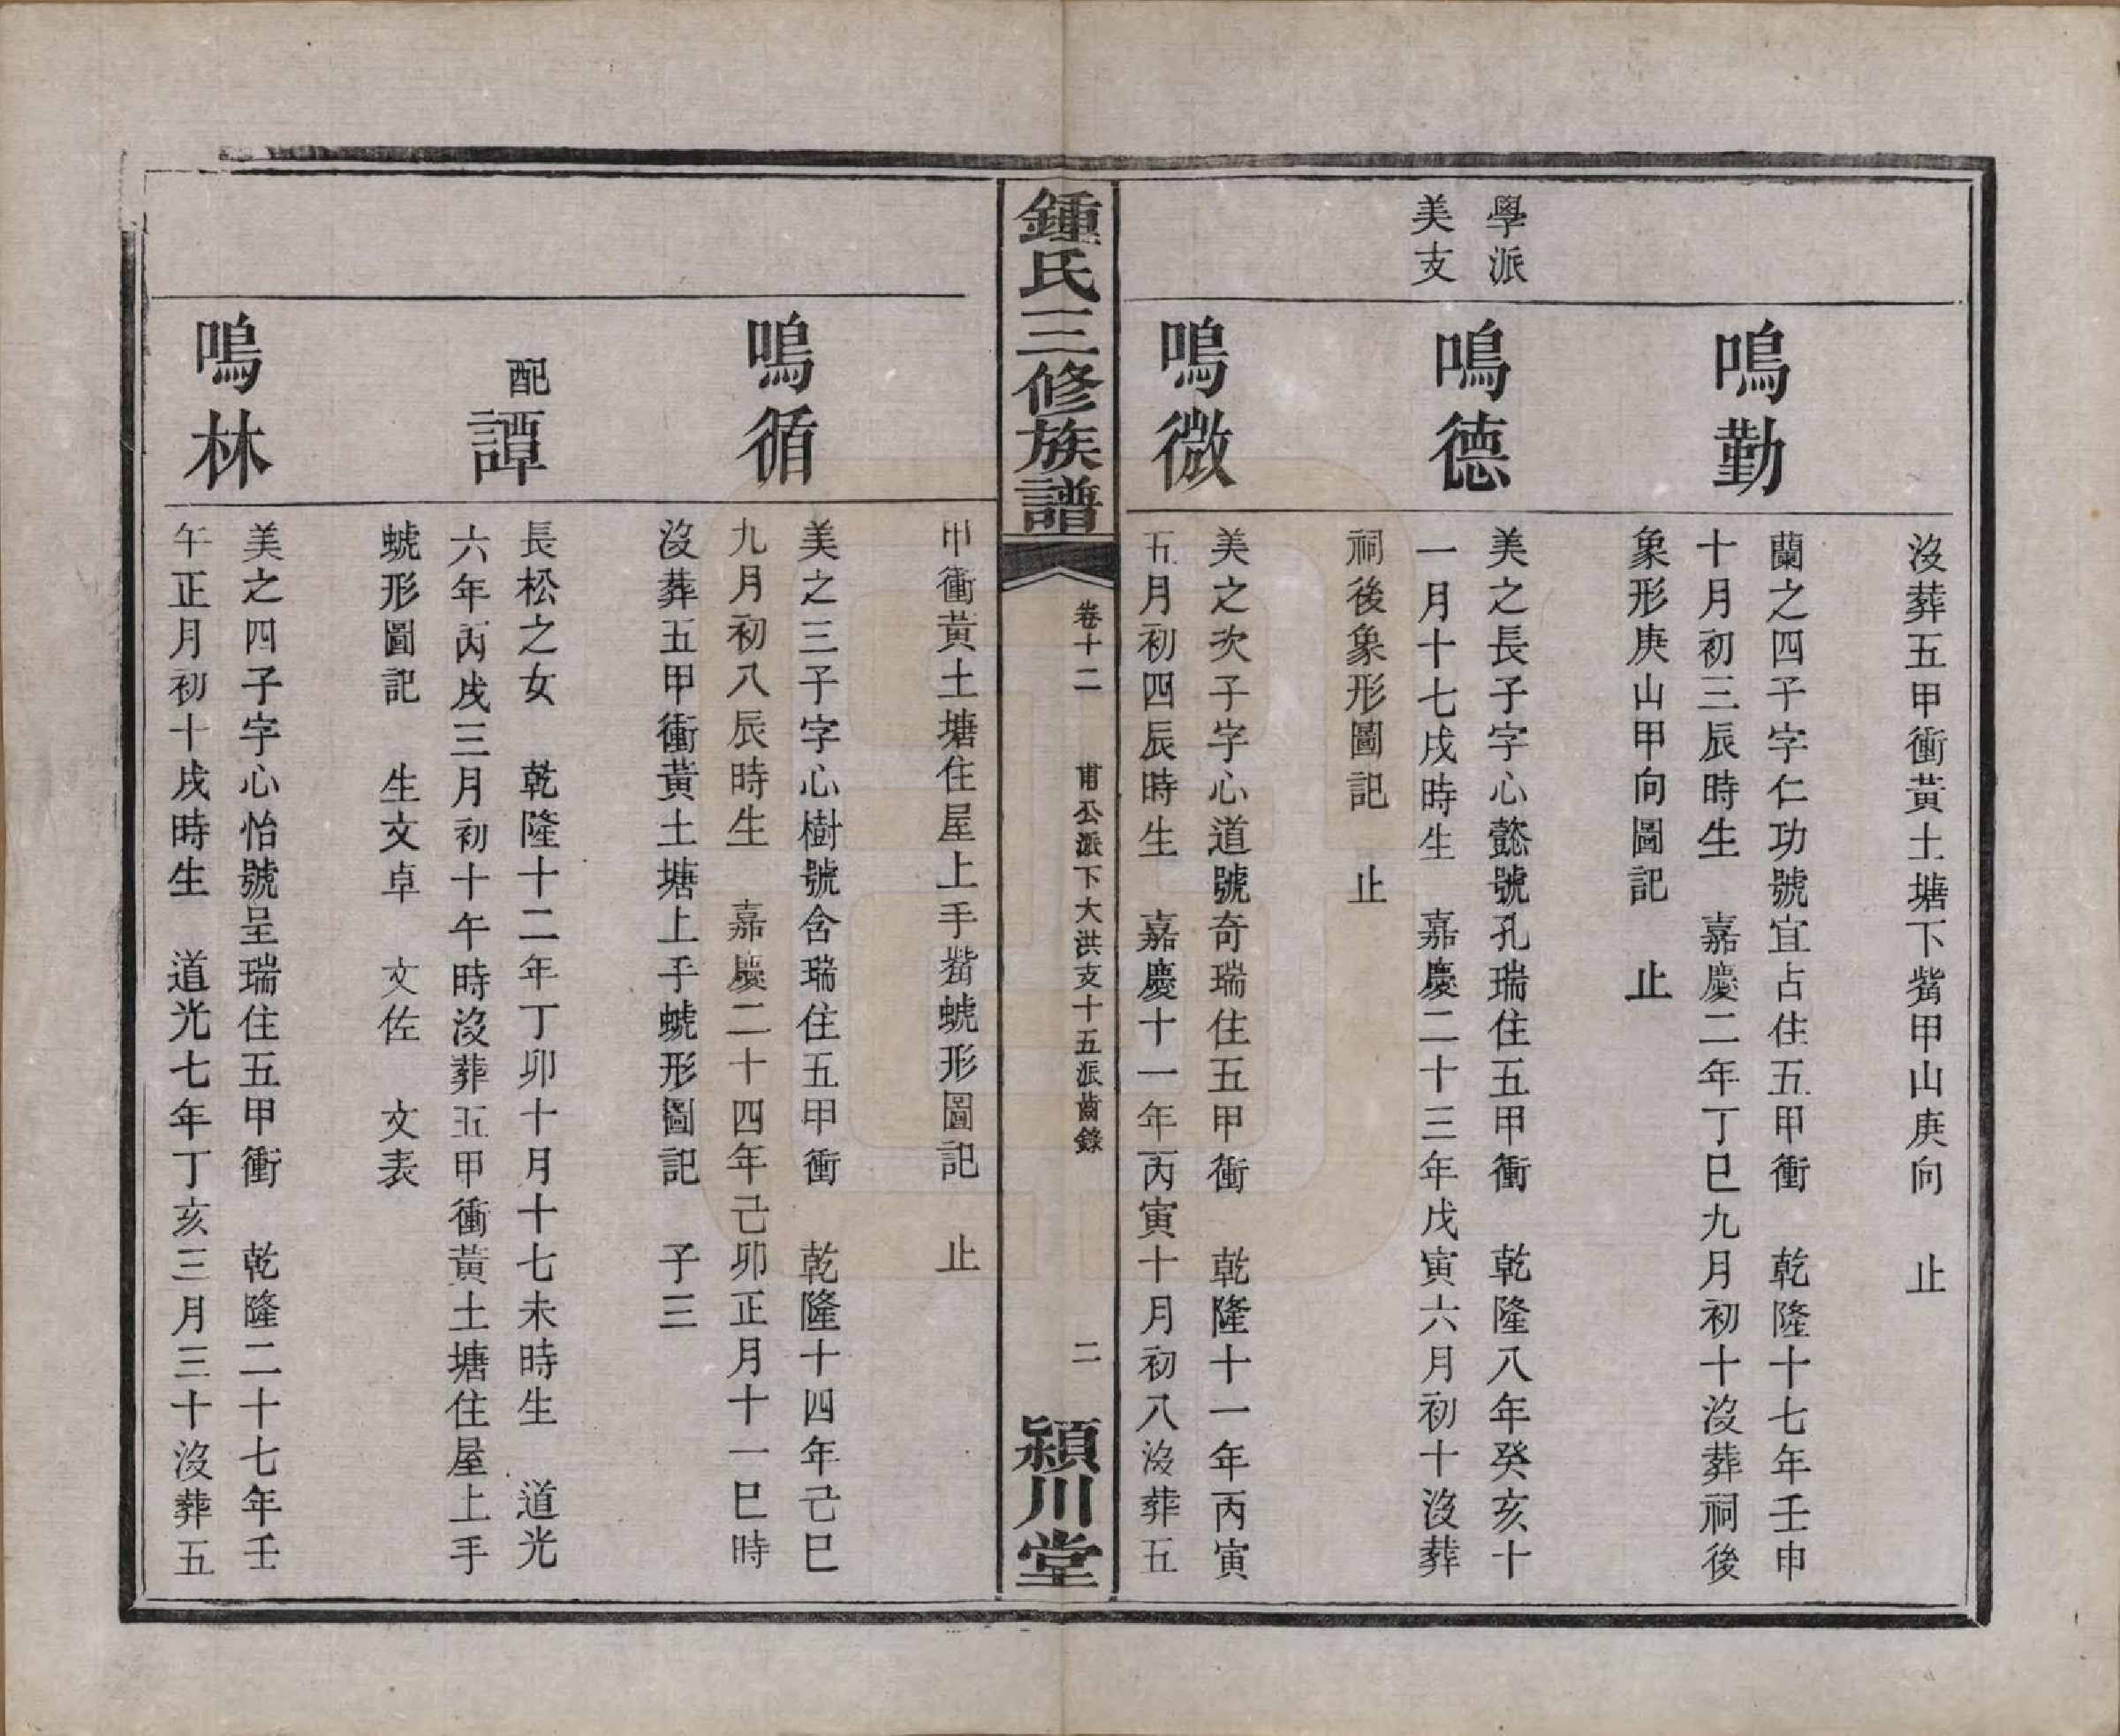 沒葬五甲衝黃土塘下塋甲山庚向　止
鳴勤
蘭之四子字仁功號宜占住五甲衝　乾隆十七年壬申
十月初三辰時生　嘉慶二年丁巳九月初十沒葬祠後
象形庚山甲向圖記　止
學派
美支
鳴德
美之長子字心懿號孔瑞住五甲衝　乾隆八年癸亥十
一月十七戌時生　嘉慶二十三年戊寅六月初十沒葬
祠後象形圖記　止
鳴微
美之次子字心道號奇瑞住五甲衝　乾隆十一年丙寅
五月初四辰時生　嘉慶十一年丙寅十月初八沒葬五
鍾氏三修族譜
卷十二　甫公派下大洪支十五派齒錄
二
潁川堂
甲衝黃土塘住屋上手塋螃形圖記　止
鳴循
美之三子字心樹號含瑞住五甲衝　乾隆十四年己巳
九月初八辰時生　嘉慶二十四年己卯正月十一巳時
沒葬五甲衝黃土塘上手形圖記　子三
配
譚
長松之女　乾隆十二年丁卯十月十七未時生　道光
六年丙戌三月初十午時沒葬五甲衝黃土塘住屋上手
形圖記　生文卓　文佐　文表
鳴林
美之四子字心怡號呈瑞住五甲衝　乾隆二十七年壬
午正月初十戌時生　道光七年丁亥三月三十沒葬五